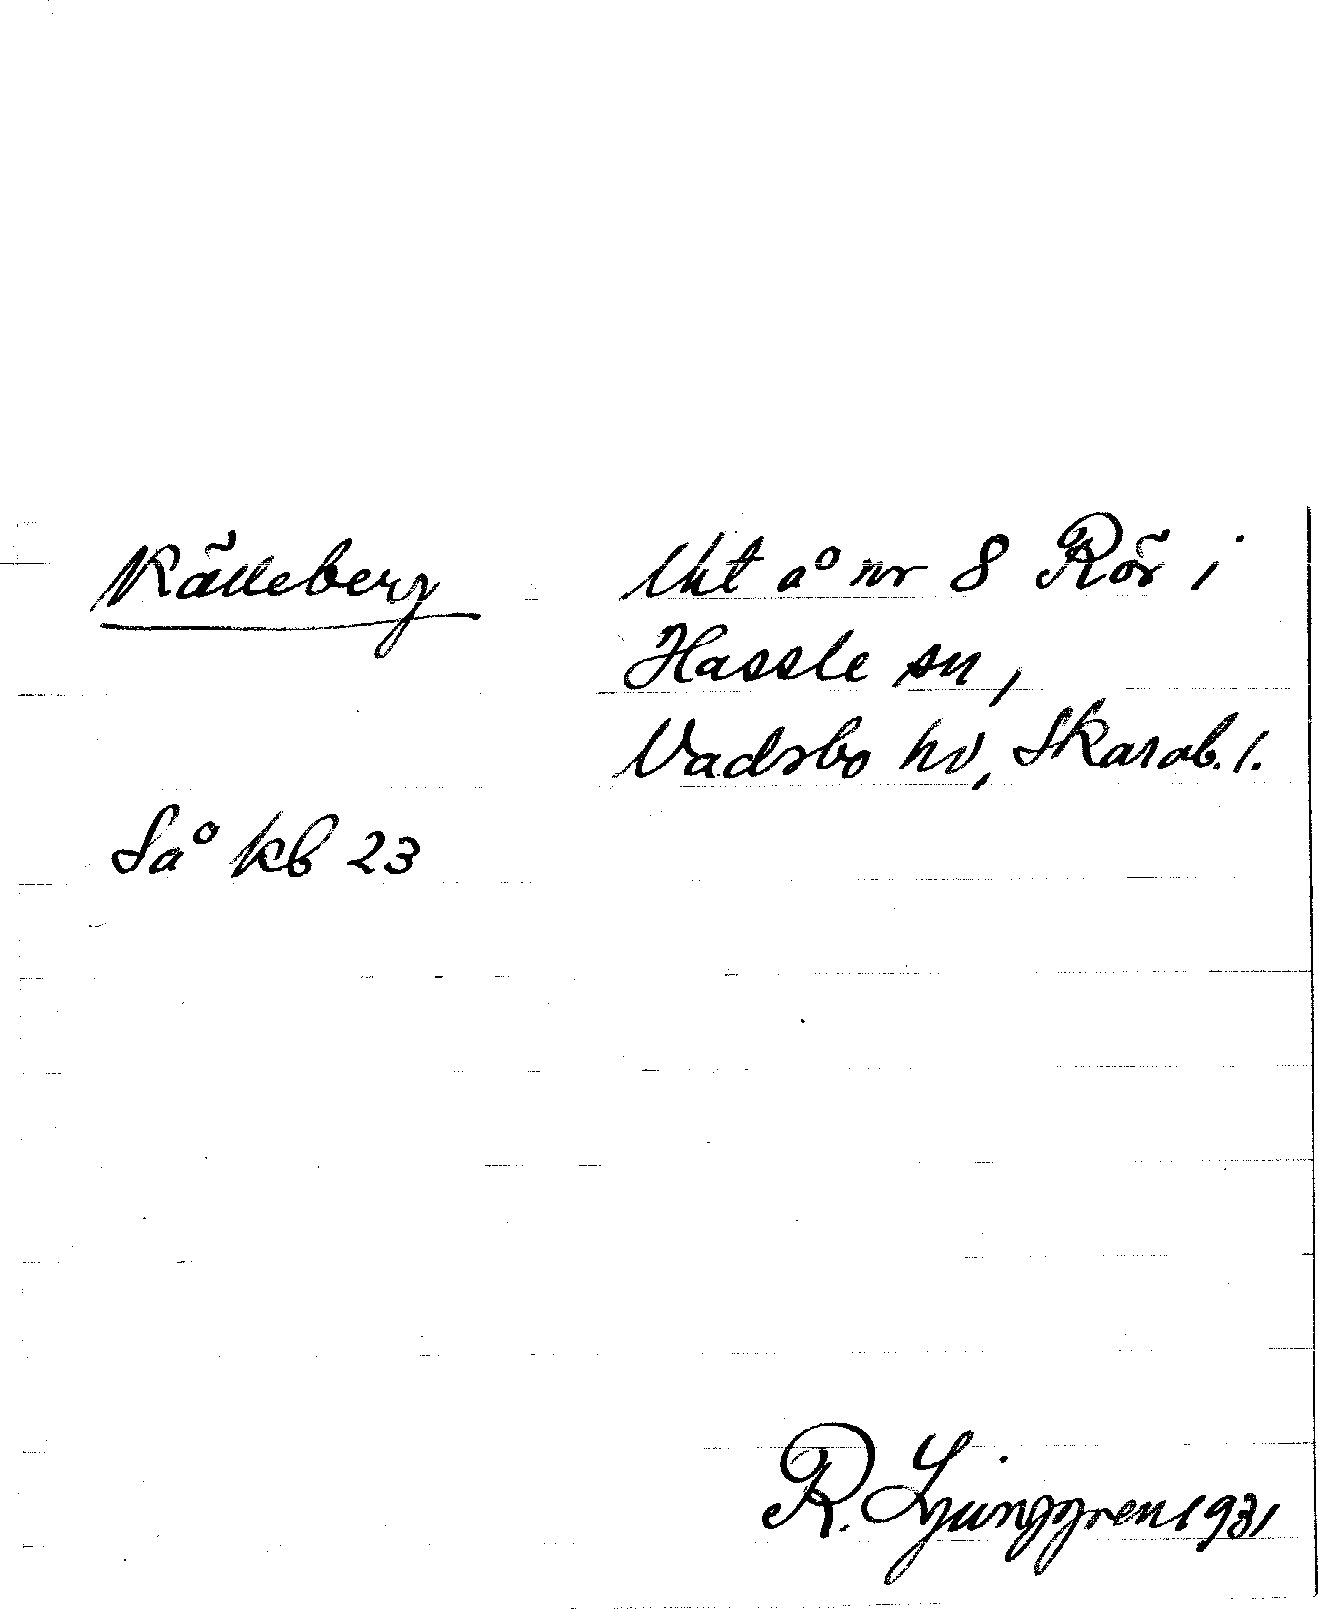 Källeberg å nr 8 Rör i
Hassle sn,
Vadsbo hd, Skarab. l.
Så kb 23
R. Ljunggren 1931